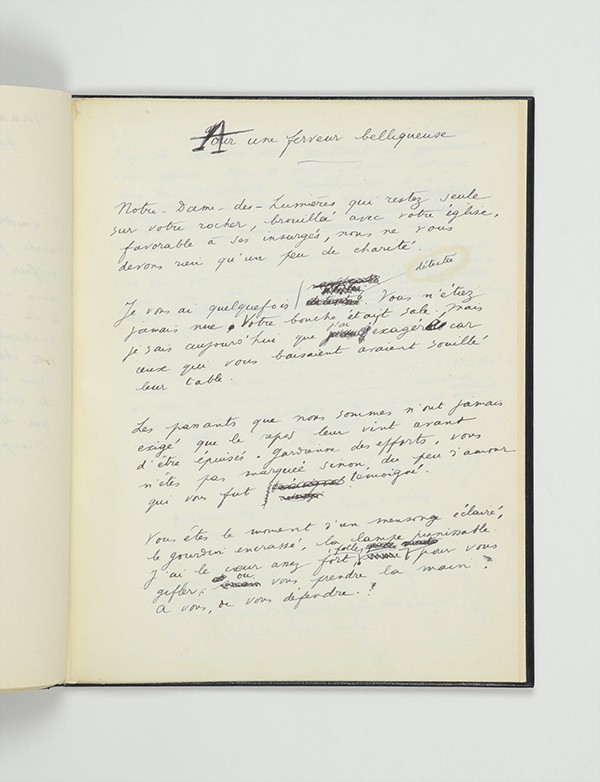 A une ferveur belliqueuse
Notre-Dame-des-Lumières qui restez seule
sur votre rocher, brouillée avec votre église,
favorable à ses insurgés, nous ne vous
devons rien qu'un peu de charité.
détestée
Je vous ai quelquefois . Vous n'étiez
jamais nue. Votre bouche était sale. Mais
je sais aujourd'hui que j'ai exagéré car
ceux qui vous baisaient avaient souillé
leur table.
Les passants que nous sommes n'ont jamais
exigé que le repos leur vint avant
d'être épuisés. Gardienne des efforts, vous
n'êtes pas marquée sinon du peu d'amour
qui vous fut témoigné.
Vous êtes le moment d'un mensonge éclairé,
le gourdin encrassé, la lampe punissable.
J'ai le cœur assez fort, pour vous
gifler, ou vous prendre la main.
A vous, de vous défendre.